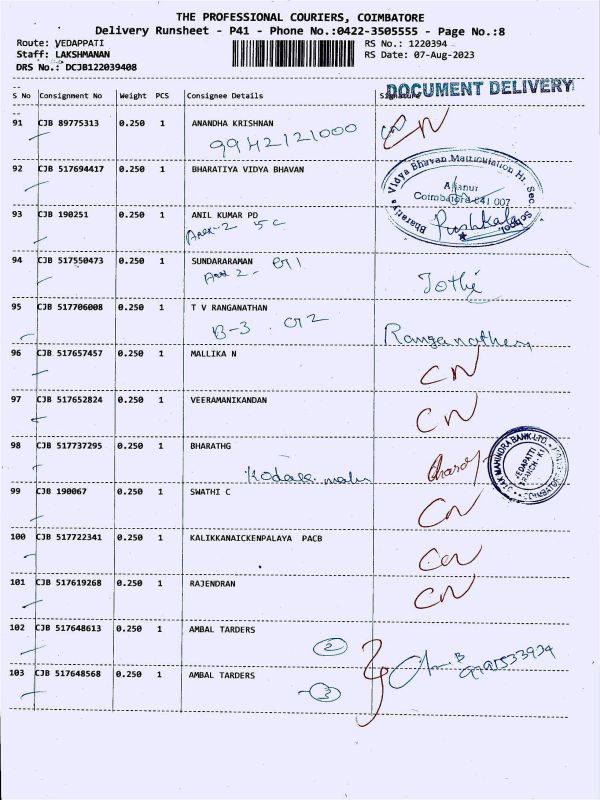 THE PROFESSIONAL COURIERS, COIMBATORE
Delivery Runsheet - P41 - Phone No.:0422-3505555 - Page No.:8
Route: VEDAPPATI RS No.: 1220394
Staff: LAKSHMANAN RS Date: 07-Aug-2023
DRS No.: DCJB122039408
DOCUMENT DELIVERY
S No Consignment No Weight PCS Consignee Details Signature
91 CJB 89775313 0.250 1 ANANDHA KRISHNAN CN
9942121000
92 CJB 517694417 0.250 1 BHARATIYA VIDYA BHAVAN
Bharatiya Vidya Bhavan Matriculation Hr. Sec. School
Coimbatore 641 007
93 CJB 190251 0.250 1 ANIL KUMAR PD Pushkala
5C
94 CJB 517550473 0.250 1 SUNDARARAMAN Jothi
95 CJB 517706008 0.250 1 T V RANGANATHAN
B-3 Ranganathan
96 CJB 517657457 0.250 1 MALLIKA N CN
97 CJB 517652824 0.250 1 VEERAMANIKANDAN CN
98 CJB 517737295 0.250 1 BHARATHG
KOTAK MAHINDRA BANK LTD
VEDAPATTI
BRANCH - K1
COIMBATORE
99 CJB 190067 0.250 1 SWATHI C CN
100 CJB 517722341 0.250 1 KALIKKANAICKENPALAYA PACB CN
101 CJB 517619268 0.250 1 RAJENDRAN CN
102 CJB 517648613 0.250 1 AMBAL TARDERS
2
103 CJB 517648568 0.250 1 AMBAL TARDERS
3